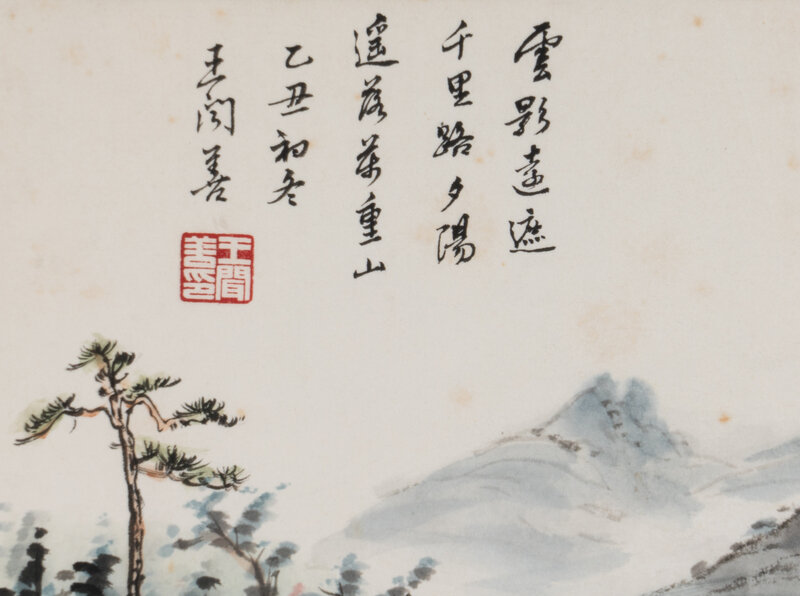 雲影遠遮
千里路夕陽
遥落萬重山
乙丑初冬
王聞善
王聞善印